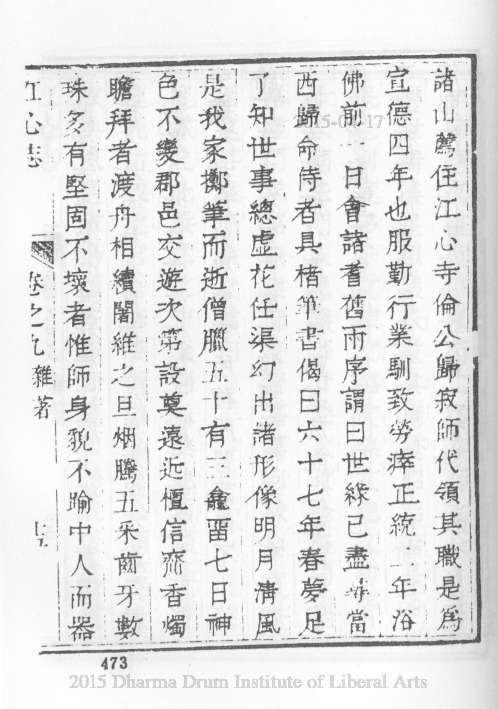 諸山薦住江心寺倫公歸寂師代領其職是爲
宣德四年也服勤行業馴致勞瘁正統二年浴
佛前一日會諸耆舊雨序謂曰世緣已盡尋當
西歸命侍者具楮筆書偈曰六十七年春夢足
了知世事總虛花任渠幻出諸形像明月清風
是我家擲筆而逝僧臘五十有三龕畱七日神
色不變郡邑交遊次第設奠遠近檀信齋香燭
瞻拜者渡舟相續闍維之旦烟騰五采齒牙數
珠多有堅固不壞者惟師身貌不踰中人而器
江心志
卷之九 雜著
十五
473
2015-04-17
2015 Dharma Drum Institute of Liberal Arts